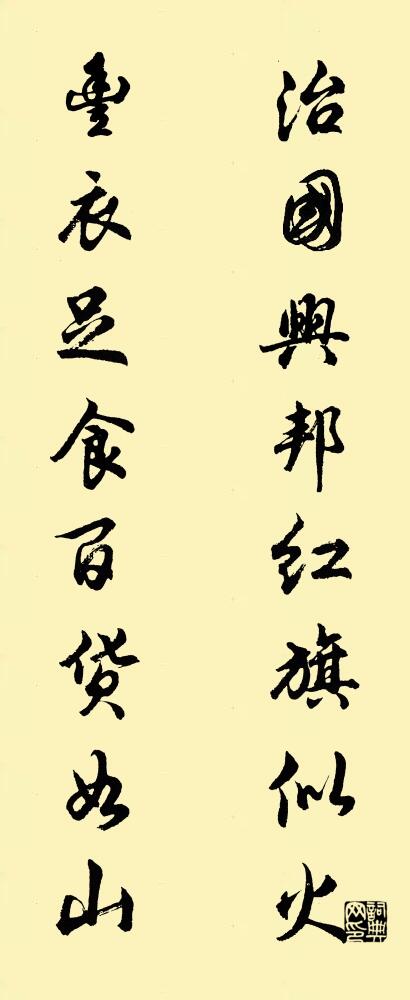 治國興邦红旗似火
豐衣足食百货如山
詞典
网印